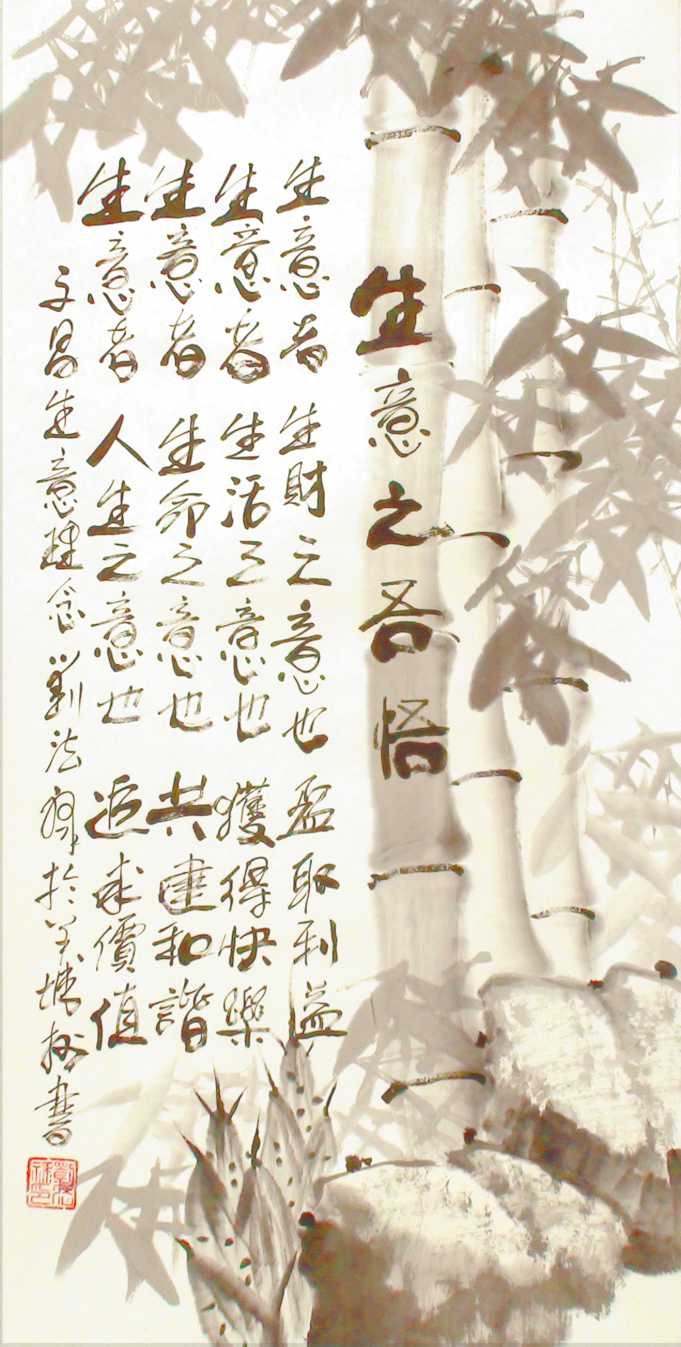 生意之吾悟
生意者 生財之意也 盈取利益
生意者 生活之意也 獲得快樂
生意者 生命之意也 共建和諧
生意者 人生之意也 追求價值
文昌生意理念 劉法 於 城 書